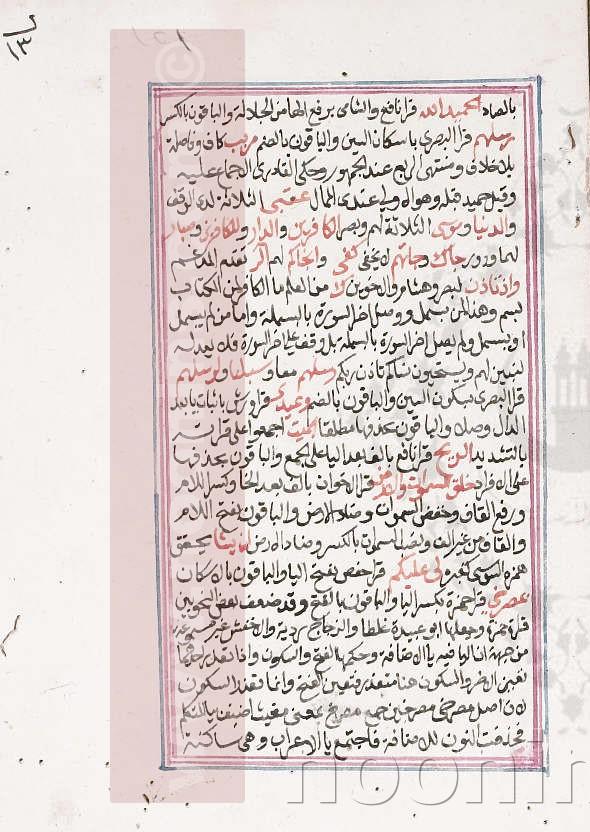 بالصاد الحميد الله قرا نافع والشامي برفع الهامن الجلالة والباقون بالكسر
رسلهم قرا البصري باسكان السين والباقون بالضم مريب كاف وفاصلة
بلاخلاف ومنتهى الربع عند الجمهور وحكى القادري الاجماع عليه
وقيل حميد قبله وهو اولى عندي الممال عقبى الثلاثة لدى الوقف
والدنيا وموسى الثلاثة لهم وبصر الكافرين والدار وللكافرين وصبار
لهما ودور جاك وجائهم لا يخفى كفى والحاكم لهم المدغم
واذ تاذن لبصر وهشام والاخوين من العلم ما الكافر لمن الكتاب
بسم وهذا لمن بسمل ووصل اخر السورة بالبسملة واما من لم يبسمل
او بسمل ولم يصل اخر السورة بالبسملة بل وقف على اخر السورة فلا يعد له
ليبين لهم ويستحيون نساكم تاذن ربكم رسلهم معا وسبلنا ولرسلهم
قرا البصري بسكون السين والباقون بالضم وعيد قرا ورش باثبات يا بعد
الدال وصلا والباقون بحذفها مطلقا بميت اجمعوا على قراته
بالتشديد الريح قرا نافع بالف بعد اليا على الجمع والباقون بحذفها
على الافراد خلق السموات والارض قرا الاخوان بالف بعد الخا وكسر اللام
ورفع القاف وخفض السموات وضاد الارض والباقون بفتح اللام
والقاف من غير الف ونصب السموات بالكسر وضاد الارض ان يشا يحقق
همزه السوسي كغيره لي عليكم قرا حفص بفتح اليا والباقون بالاسكان
بمصرخي قرا حمزة بكسر اليا والباقون بالفتح وقد ضعف بعض النحويين
قراة حمزة وجعلها ابو عبيدة غلطا والزجاج ردية والاخفش غير مسموعة
من جهة ان اليا فيه يا الاضافة وحكمها الفتح والسكون واذا تعذر احدهما
تعين الاخر والسكون هنا متعذر فتعين الفتح وانما تعذر السكون
لان اصل مصرخي مصرخين جمع مصرخ بمعنى مغيث اضيف يا المتكلم
فحذفت النون للاضافة فاجتمع يا الاعراب وهي ساكنة